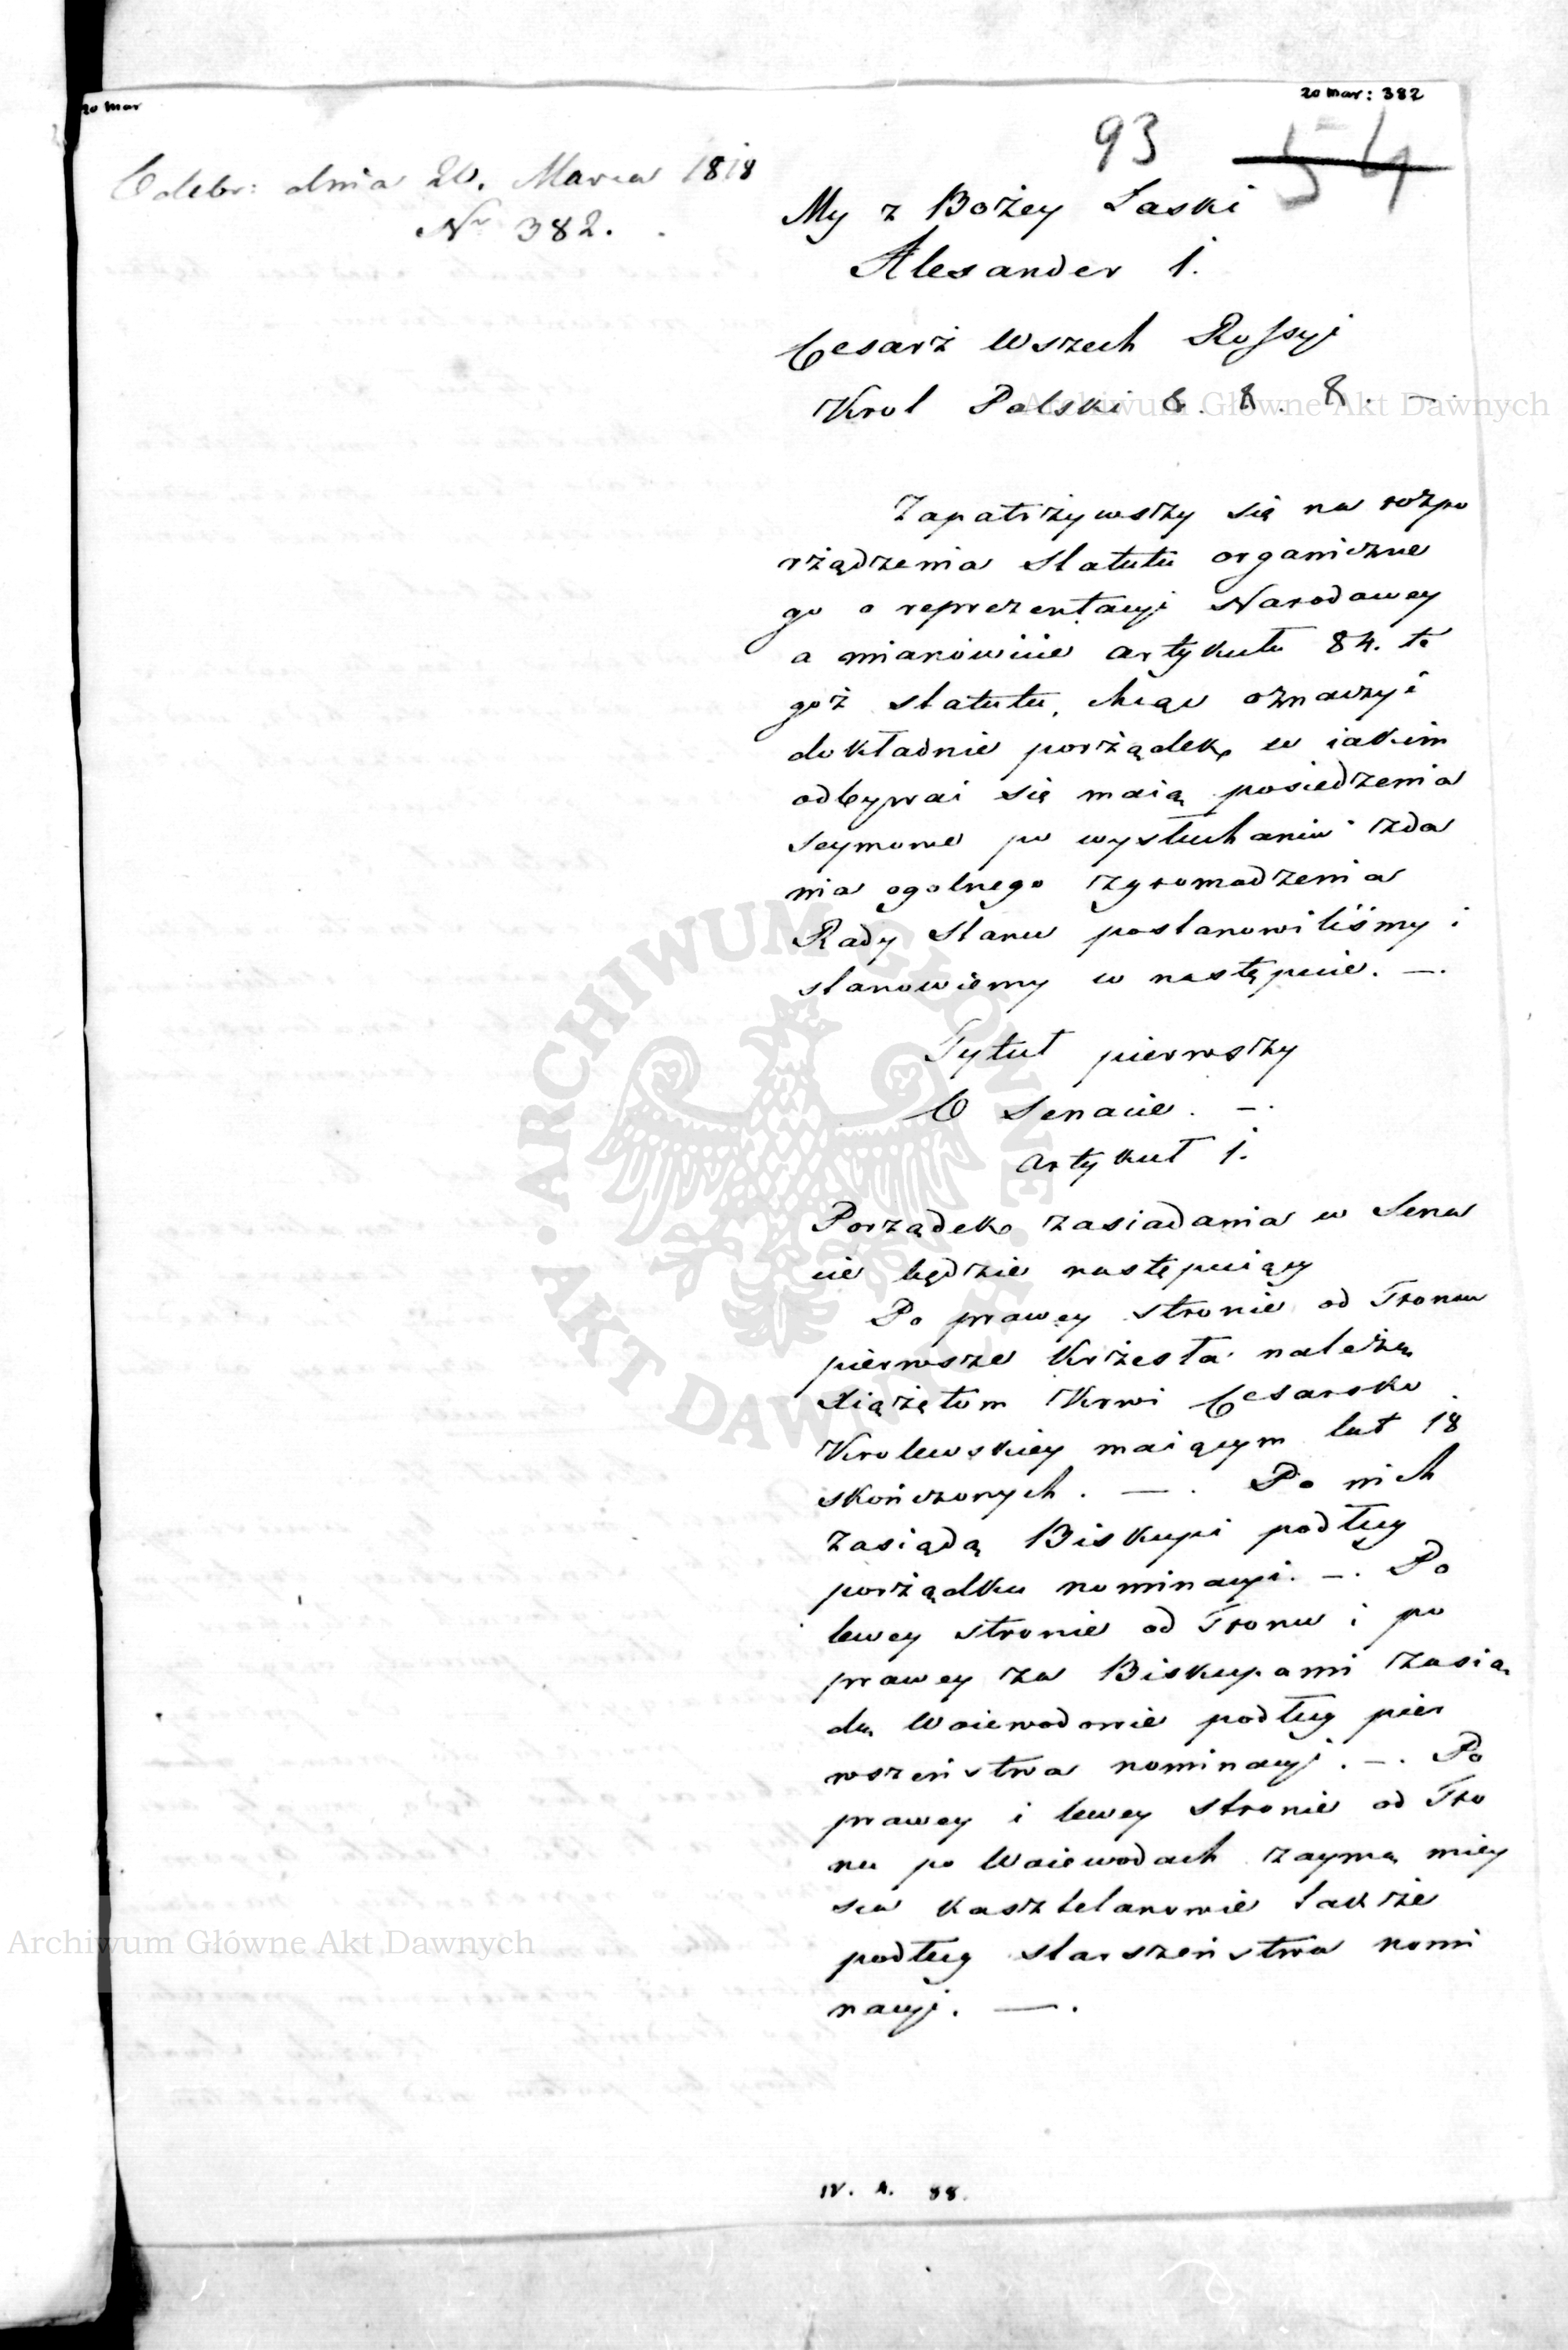 20 mar
20 mar: 382
93 54
Odebr: dnia 20. Marca 1818
Nr 382.
My z Bożey Łaski
Alexander 1.
Cesarz Wszech Rossyi
Krol Polski &. &. &. —.
Zapatrzywszy się na rozpo
rządzenia Statutu organiczne
go o reprezentacyi Narodowey
a mianowicie artykułu 84. te
goż statutu, chcąc oznaczyć
dokładnie porządek w iakim
odbywać się maią posiedzenia
Seymowe po wysłuchaniu zda
nia ogolnego zgromadzenia
Rady Stanu postanowiliśmy i
stanowiemy co następuie. —.
Tytuł pierwszy
O Senacie. —.
artykuł 1.
Porządek zasiadania w Sena
cie będzie następuiący
Po prawey stronie od Tronu
pierwsze Krzesła należą
Xiążętom Krwi Cesarsko
Krolewskiey maiącym lat 18
skończonych. —. Po nich
zasiądą Biskupi podług
porządku nominacyi. —. Po
lewey stronie od Tronu i po
prawey za Biskupami zasią
dą Woiewodowie podług pier
wszeństwa nominacyi. —. Po
prawey i lewey stronie od Tro
nu po Woiewodach zaymą miey
sca kasztelanowie także
podług starszeństwa nomi
nacyi. —.
IV. A. 88.
Archiwum Główne Akt Dawnych
Archiwum Główne Akt Dawnych
ARCHIWUM GŁÓWNE
AKT DAWNYCH